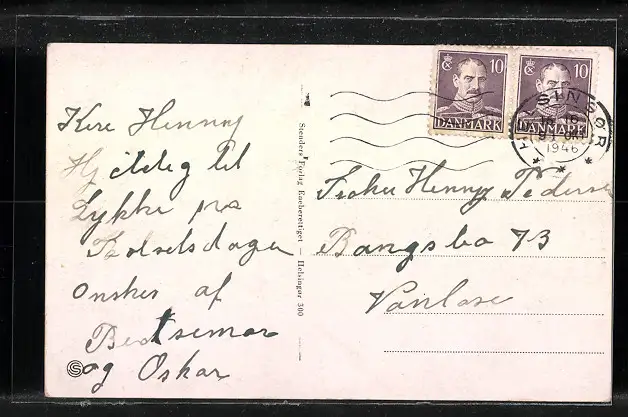 Kere Henny
Hjertelig til
Lykke paa
Födselsdagen
Onsker af
Bedstemor
og Oskar
Stenders Forlag Eneberettiget — Helsingør 300
10
DANMARK
10
DANMARK
HELSINGØR
1946
Frøken Henny Pedersen
Bangsbo 73
Vanløse